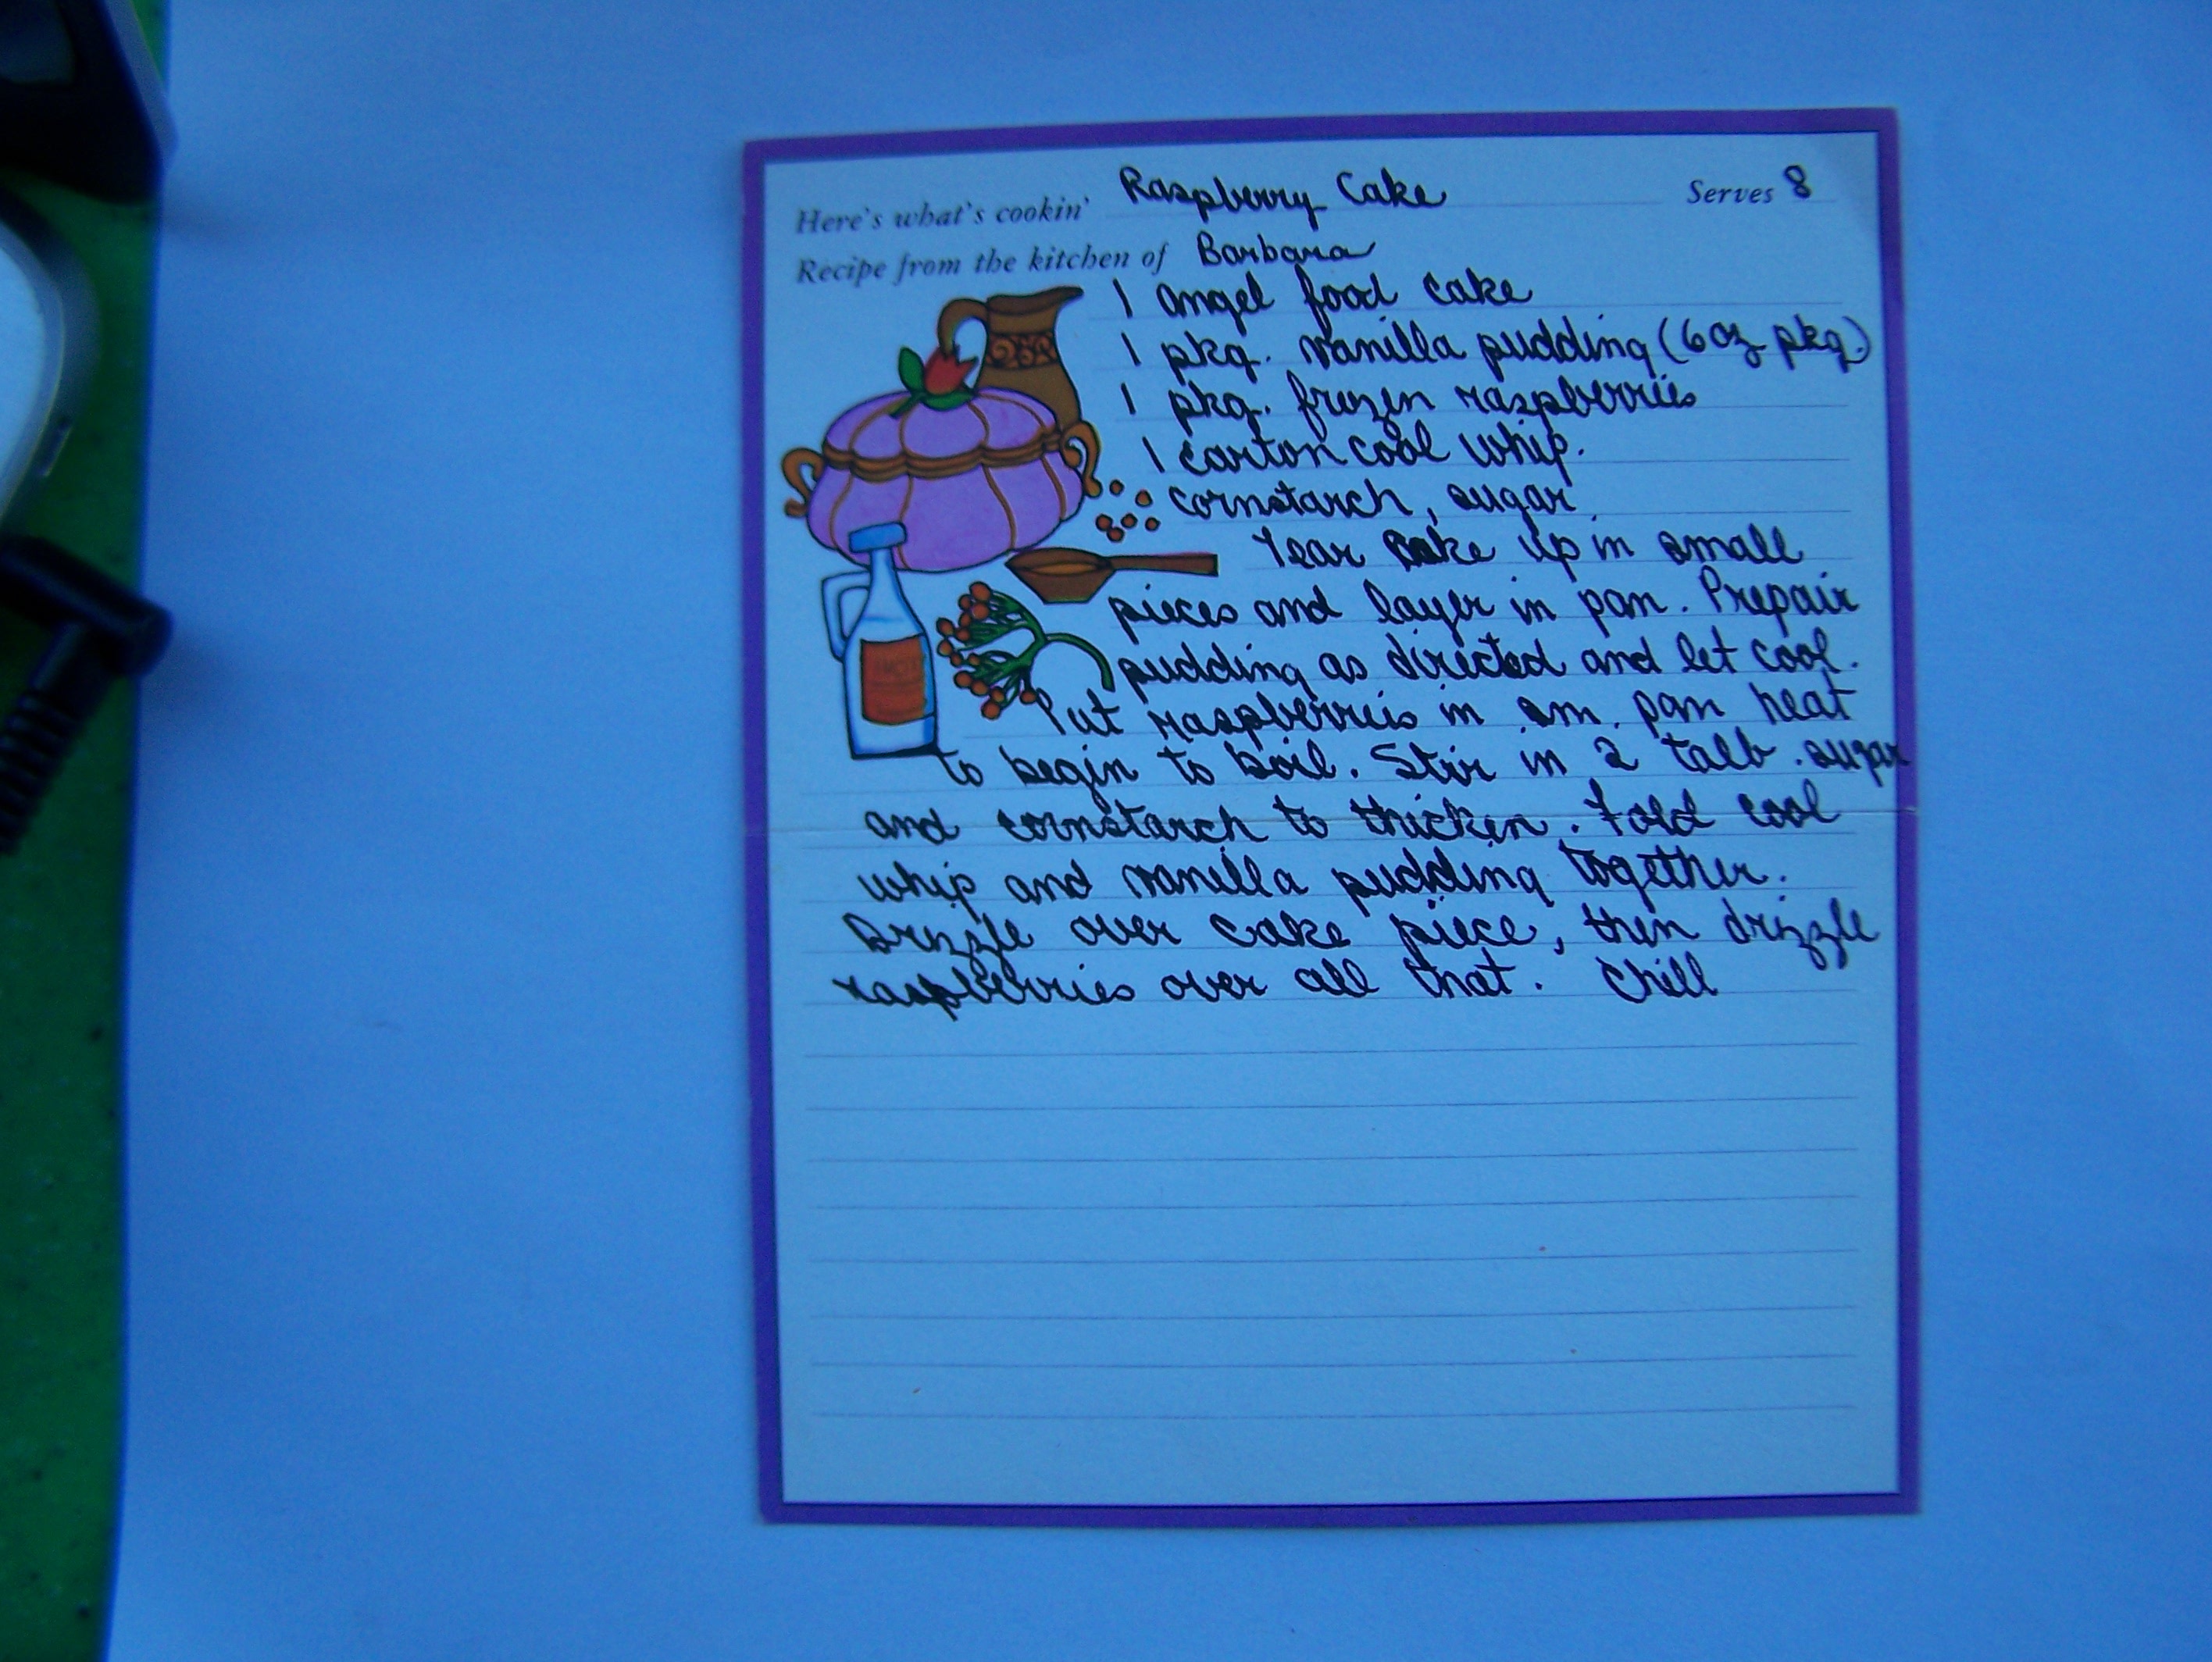 Here's what's cookin' Raspberry Cake Serves 8
Recipe from the kitchen of Barbara
1 angel food cake
1 pkg. vanilla pudding (6 oz pkg.)
1 pkg. frozen raspberries
1 carton cool whip.
cornstarch, sugar
Tear cake up in small
pieces and layer in pan. Prepair
pudding as directed and let cool.
Put raspberries in sm. pan heat
to begin to boil. Stir in 2 talb. sugar
and cornstarch to thicken. Fold cool
whip and vanilla pudding together.
Drizzle over cake piece, then drizzle
raspberries over all that. Chill